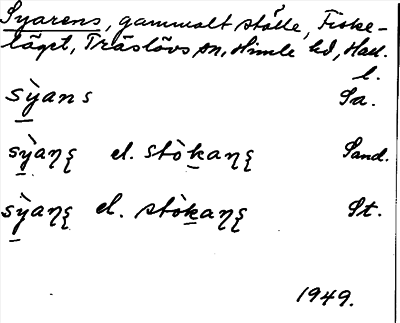 Syarens, gammalt ställe, Fiske-
läget, Träslövs sn, Himle hd, Hall.
l.
sỳans Sa.
sỳaƞs el. stòkaƞs Sand.
sỳaƞs el. stòkaƞs St.
1949.